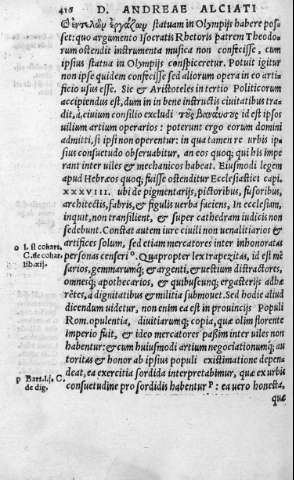 416 D. ANDREAE ALCIATI
ἐργάζων statuam in Olympijs habere pos-
set: quo argumento Isocratis Rhetoris patrem Theodo-
rum ostendit instrumenta musica non confecisse, cum
ipsius statua in Olympijs conspiceretur. Potuit igitur
non ipse quidem confecisse sed aliorum opera in eo arti-
ficio usus esse. Sic & Aristoteles in tertio Politicorum
accipiendus est, dum in in bene institutis civitatibus tra-
dit, à civium consilio excludi τοὺς βαναύσους id est ipsos
vilium artium operarios: poterunt ergo eorum domini
admitti, si ipsi non operentur: in qua tamen re urbis ip-
sius consuetudo observabitur, an eos quoq; qui his impe
rant inter viles & mechanicos habeat. Eiusmodi legem
apud Hebræos quoq; fuisse ostenditur Ecclesiastici capi.
XXXVIII. ubi de pigmentarijs, pictoribus, fusoribus,
architectis, fabris, & figulis verba faciens, In ecclesiam,
inquit, non transilient, & super cathedram iudicis non
sedebunt. Constat autem iure civili non venalitiarios &
artifices solum, sed etiam mercatores inter inhonoratas
personas censeri o. Quapropter & trapezitas, id est mē
sarios, gemmarumq; & argenti, & vestium distractores,
omnesq; apothecarios, & quibuscunq; ergasterijs adhæ
rētes, à dignitatibus & militia submovet. Sed hodie aliud
dicendum videtur, non enim ea est in provincijs Populi
Rom. opulentia, divitiarumq; copia, quæ olim florente
Imperio fuit, & ideo mercatores passim inter viles non
habentur: & cum huiusmodi artium negociationumq; au
toritas & honor ab ipsius populi existimatione depen-
deat, ea exercitia sordida interpretabimur, quæ ex urbis
consuetudine pro sordidis habentur p: ea vero honesta,
quæ
o l. si cohort.
C. de cohor.
lib. xij.
p Bart. l. j. C.
de dig.